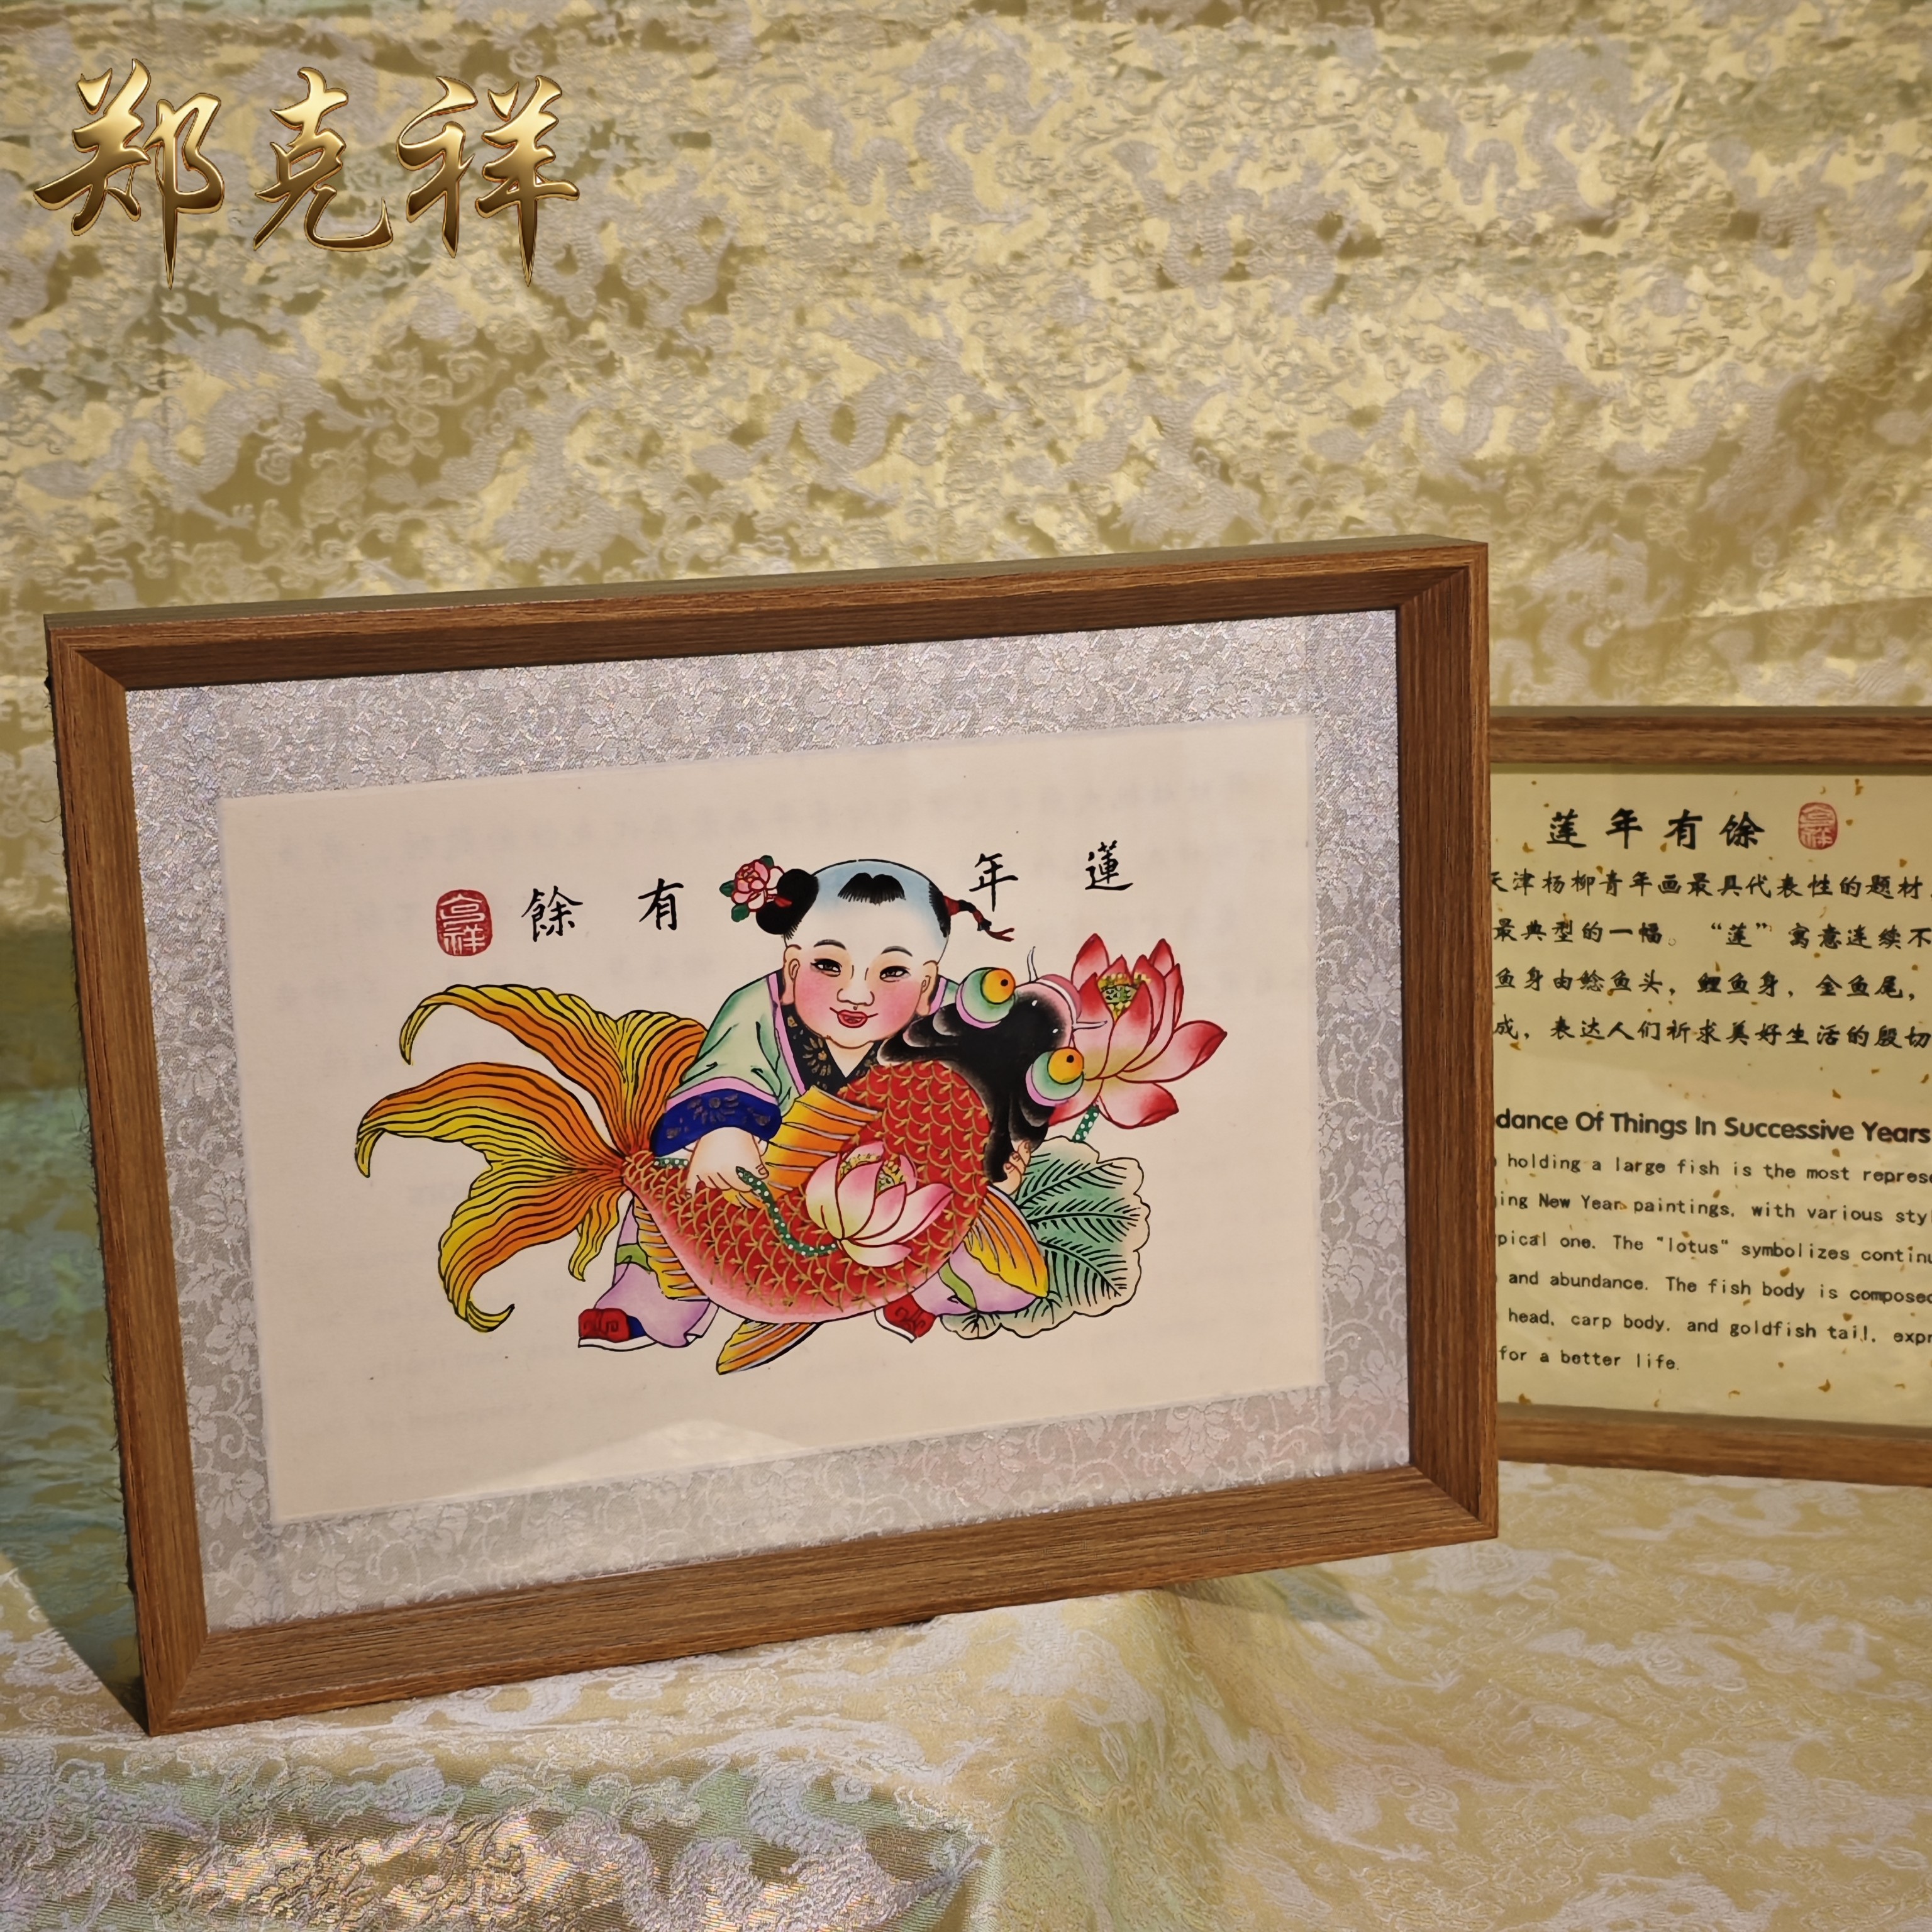 郑克祥
蓮年有餘
莲年有馀
天津杨柳青年画最具代表性的题材
最典型的一幅。“莲”寓意连续不
鱼身由鲶鱼头，鲤鱼身，金鱼尾，
成，表达人们祈求美好生活的殷切
dance Of Things In Successive Years
holding a large fish is the most represe
ing New Year paintings, with various sty
pical one. The "lotus" symbolizes continu
and abundance. The fish body is composed
head, carp body, and goldfish tail, expr
for a better life.